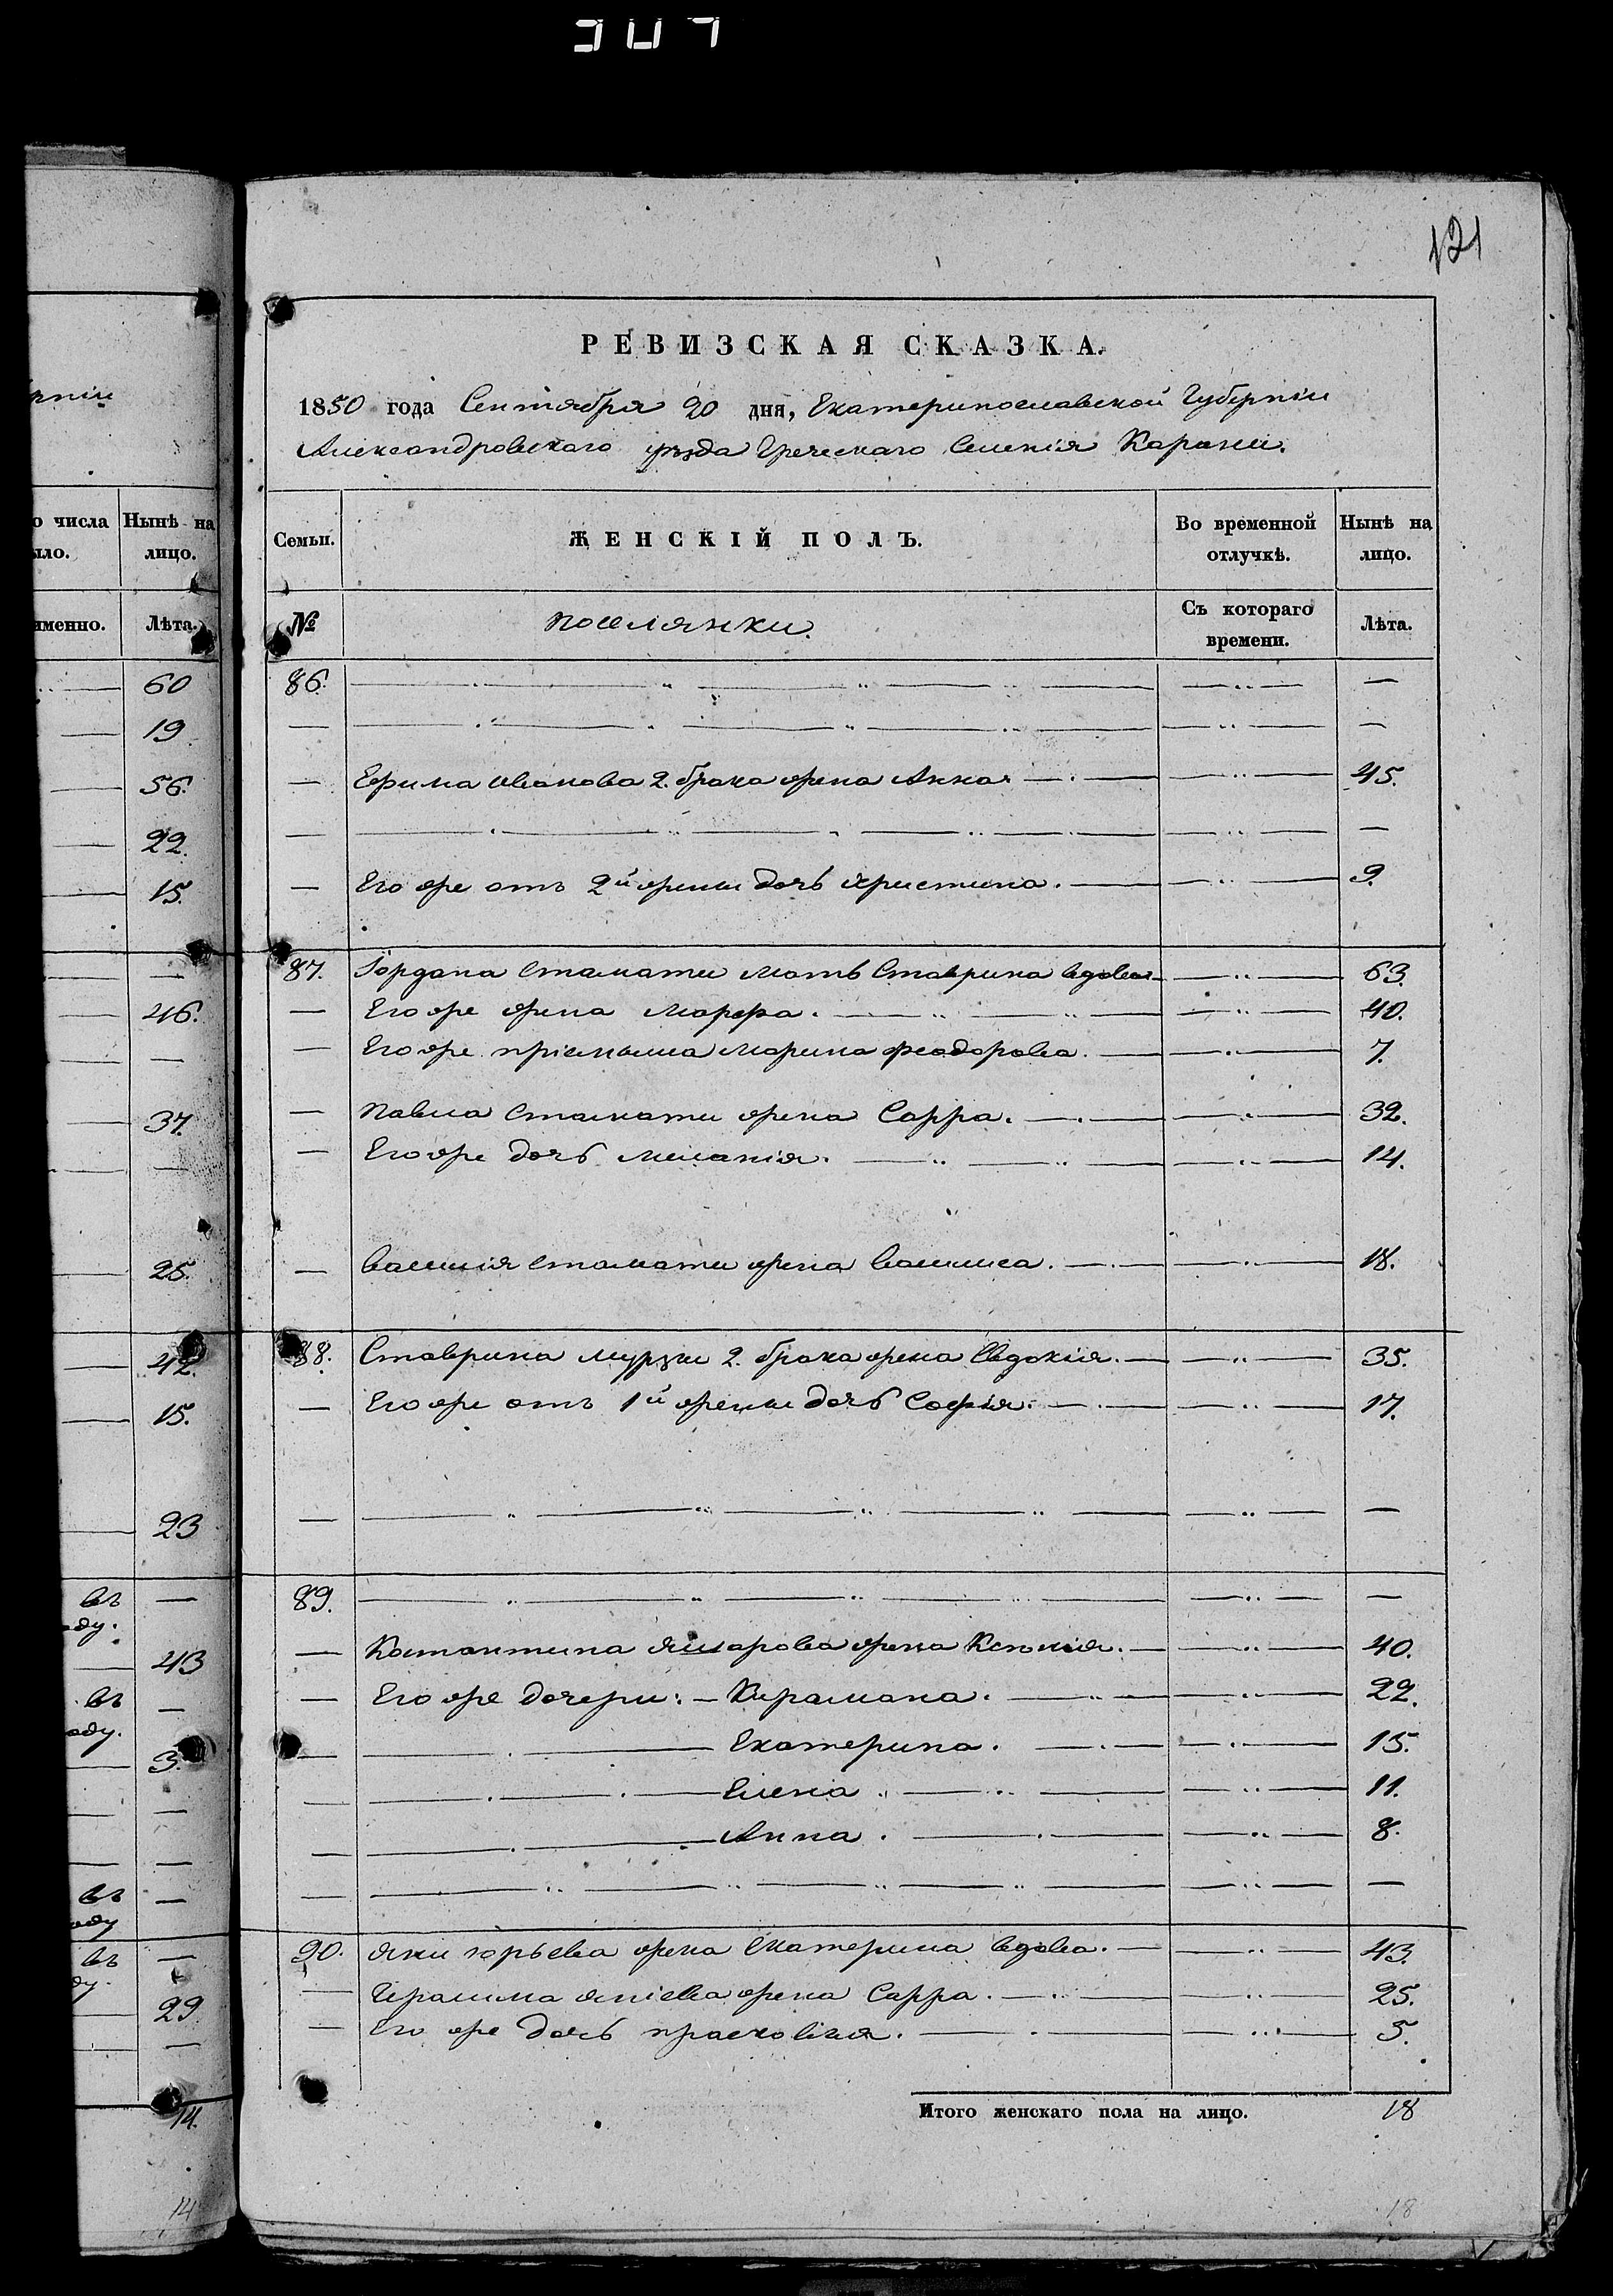 121
РЕВИЗСКАЯ СКАЗКА.
1850 года Сентября 20 дня, Екатеринославской Губерніи
Александровскаго уѣзда Греческаго Селенія Карани.
Семьи. ЖЕНСКІЙ ПОЛЪ. Во временной отлучкѣ. Нынѣ на лицо.
№ Поселянки. Съ котораго времени. Лѣта.
86.
Ефима Иванова 2. брака жена Анна 45.
Его же отъ 2й жены дочь Христина. 9.
87. Іордана Стамати мать Ставрина вдова 63.
Его же жена Марфа. 40.
Его же пріемыша Марина Феодорова. 7.
Павла Стамати жена Сарра. 32.
Его же дочь Меланія. 14.
Василія Стамати жена Василиса. 18.
88. Ставрина Мурзи 2. брака жена Евдокія. 35.
Его же отъ 1й жены дочь Софія. 17.
89.
Костантина Яшарова жена Ксенія. 40.
Его же дочери: Кирамана. 22.
Екатерина. 15.
Елена 11.
Анна. 8.
90. Яни Юрьева жена Екатерина вдова. 43.
Герасима Яніева жена Сарра. 25.
Его же дочь Прасковія. 5.
Итого женскаго пола на лицо. 18
18
рніи
о числа Нынѣ на
ыло. лицо.
именно. Лѣта.
60
19
56.
22.
15.
46.
37.
25.
42.
15.
23
въ
оду.
43
въ
оду.
3.
въ
оду
въ
ду.
29
14.
14